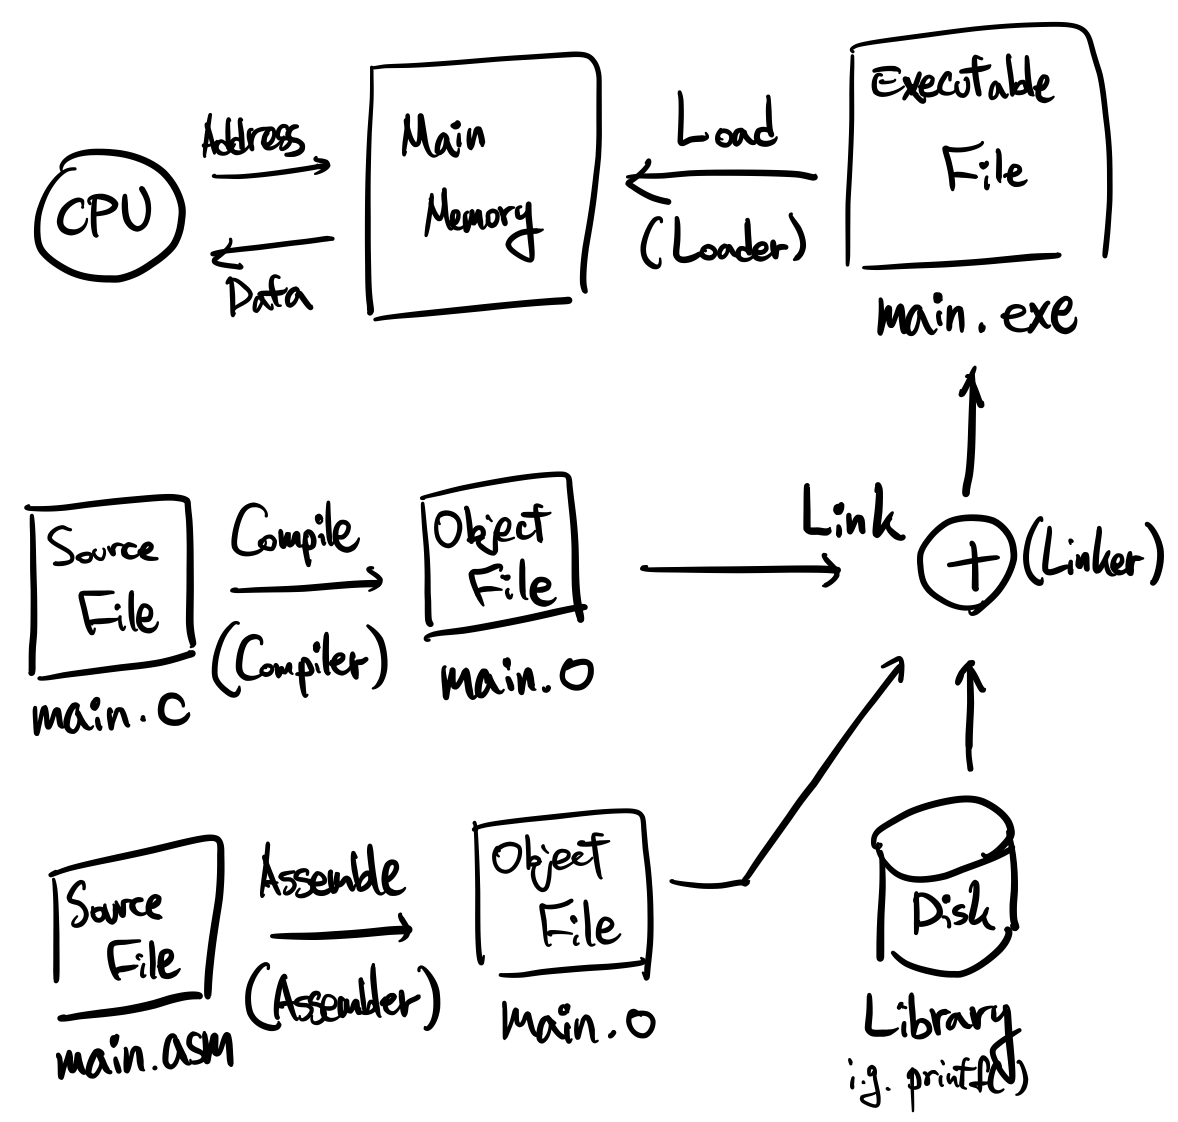 Address
CPU
Data
Main
Memory
Load
(Loader)
Executable
File
main.exe
Source
File
main.c
Compile
(Compiler)
Object
File
main.o
Link
+
(Linker)
Source
File
main.asm
Assemble
(Assembler)
Object
File
main.o
Disk
Library
i.g. printf()